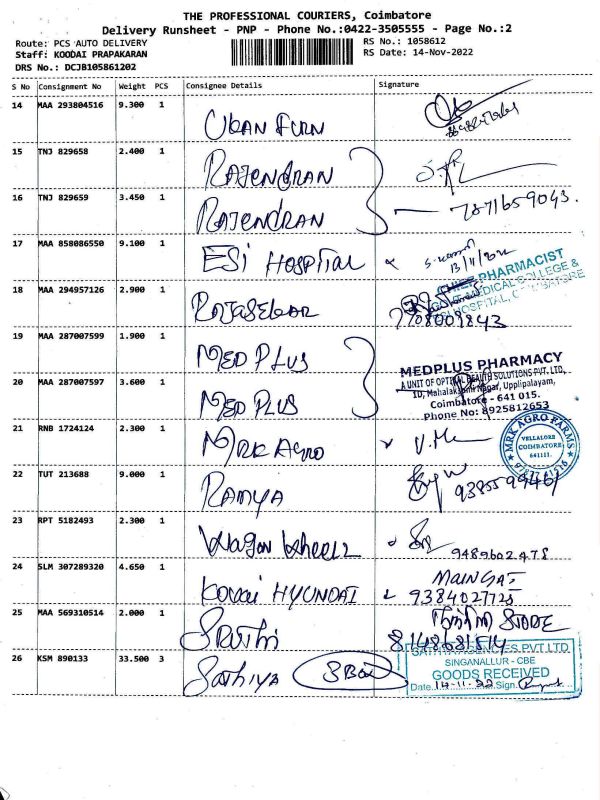 THE PROFESSIONAL COURIERS, Coimbatore
Delivery Runsheet - PNP - Phone No.:0422-3505555 - Page No.:2
Route: PCS AUTO DELIVERY
RS No.: 1058612
Staff: KOODAI PRAPAKARAN
RS Date: 14-Nov-2022
DRS No.: DCJB105861202
S No Consignment No Weight PCS Consignee Details Signature
14 MAA 293804516 9.300 1
URAN FURN
15 TNJ 829658 2.400 1
RAJENDRAN
16 TNJ 829659 3.450 1
RAJENDRAN 7871659043.
17 MAA 858086550 9.100 1
ESI HOSPITAL
PHARMACIST
MEDICAL COLLEGE &
HOSPITAL,
18 MAA 294957126 2.900 1
RAJASEKAR
19 MAA 287007599 1.900 1
MED PLUS
MEDPLUS PHARMACY
A UNIT OF OPTICAL HEALTH SOLUTIONS PVT. LTD,
1D, Mahalakshmi Nagar, Upplipalayam,
20 MAA 287007597 3.600 1
Coimbatore - 641 015.
MED PLUS
Phone No: 8925812653
21 RNB 1724124 2.300 1
MRK AGRO
MRK AGRO FARMS
VELLALORE
COIMBATORE
641111.
22 TUT 213688 9.000 1
RAMYA
23 RPT 5182493 2.300 1
Wagon Wheels 9489602478
24 SLM 307289320 4.650 1
MAIN GAT
Kovai HYUNDAI 9384027725
25 MAA 569310514 2.000 1
STORE
Sruthi
26 KSM 890133 33.500 3
Sathiya
PVT LTD
SINGANALLUR - CBE
GOODS RECEIVED
Date 14-11-22 Sign.